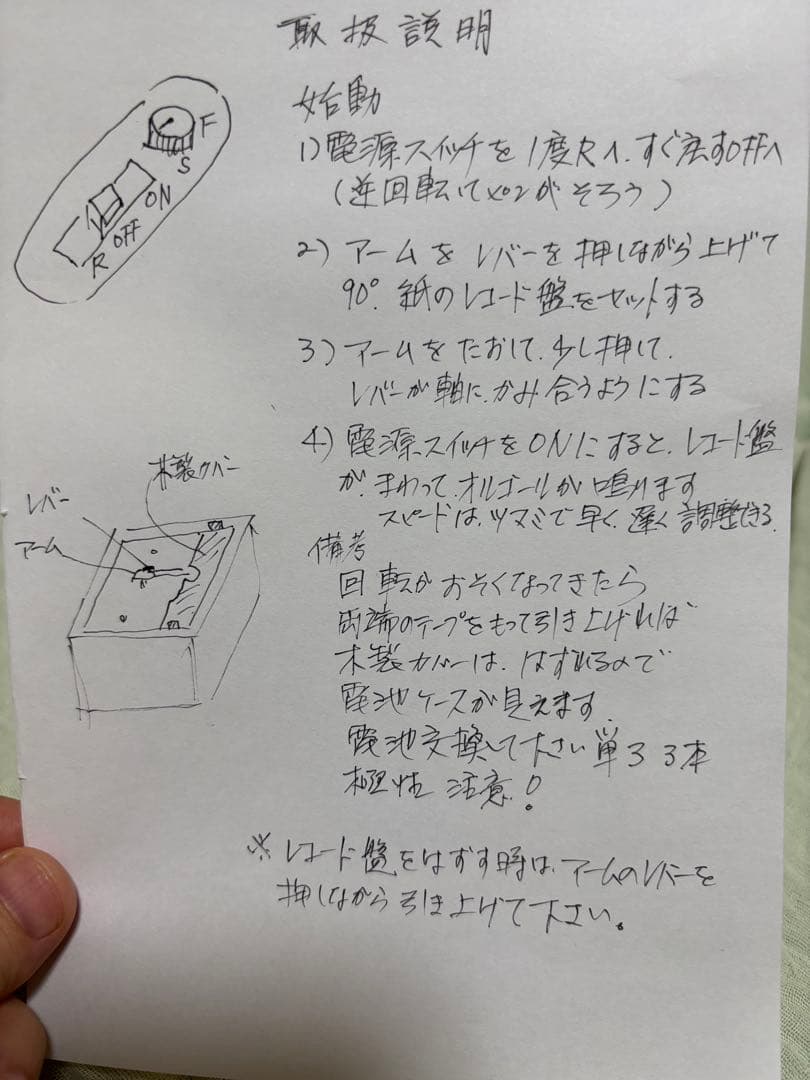 取扱説明
始動
1) 電源スイッチを1度Rへ、すぐ戻すOFFへ
(逆回転して がそろう)
2) アームをレバーを押しながら上げて
90°. 紙のレコード盤をセットする
3) アームをたおして、少し押して、
レバーが軸に、かみ合うようにする
4) 電源スイッチをONにすると、レコード盤
が、まわって、オルゴールが鳴ります
スピードは、ツマミで早く、遅く調整できる.
備考
回転がおそくなってきたら
両端のテープをもって引き上げれば
木製カバーは、はずれるので
電池ケースが見えます.
電池交換して下さい単3 3本
極性 注意!
※ レコード盤をはずす時は、アームのレバーを
押しながら引き上げて下さい。
F
S
ON
OFF
R
木製カバー
レバー
アーム